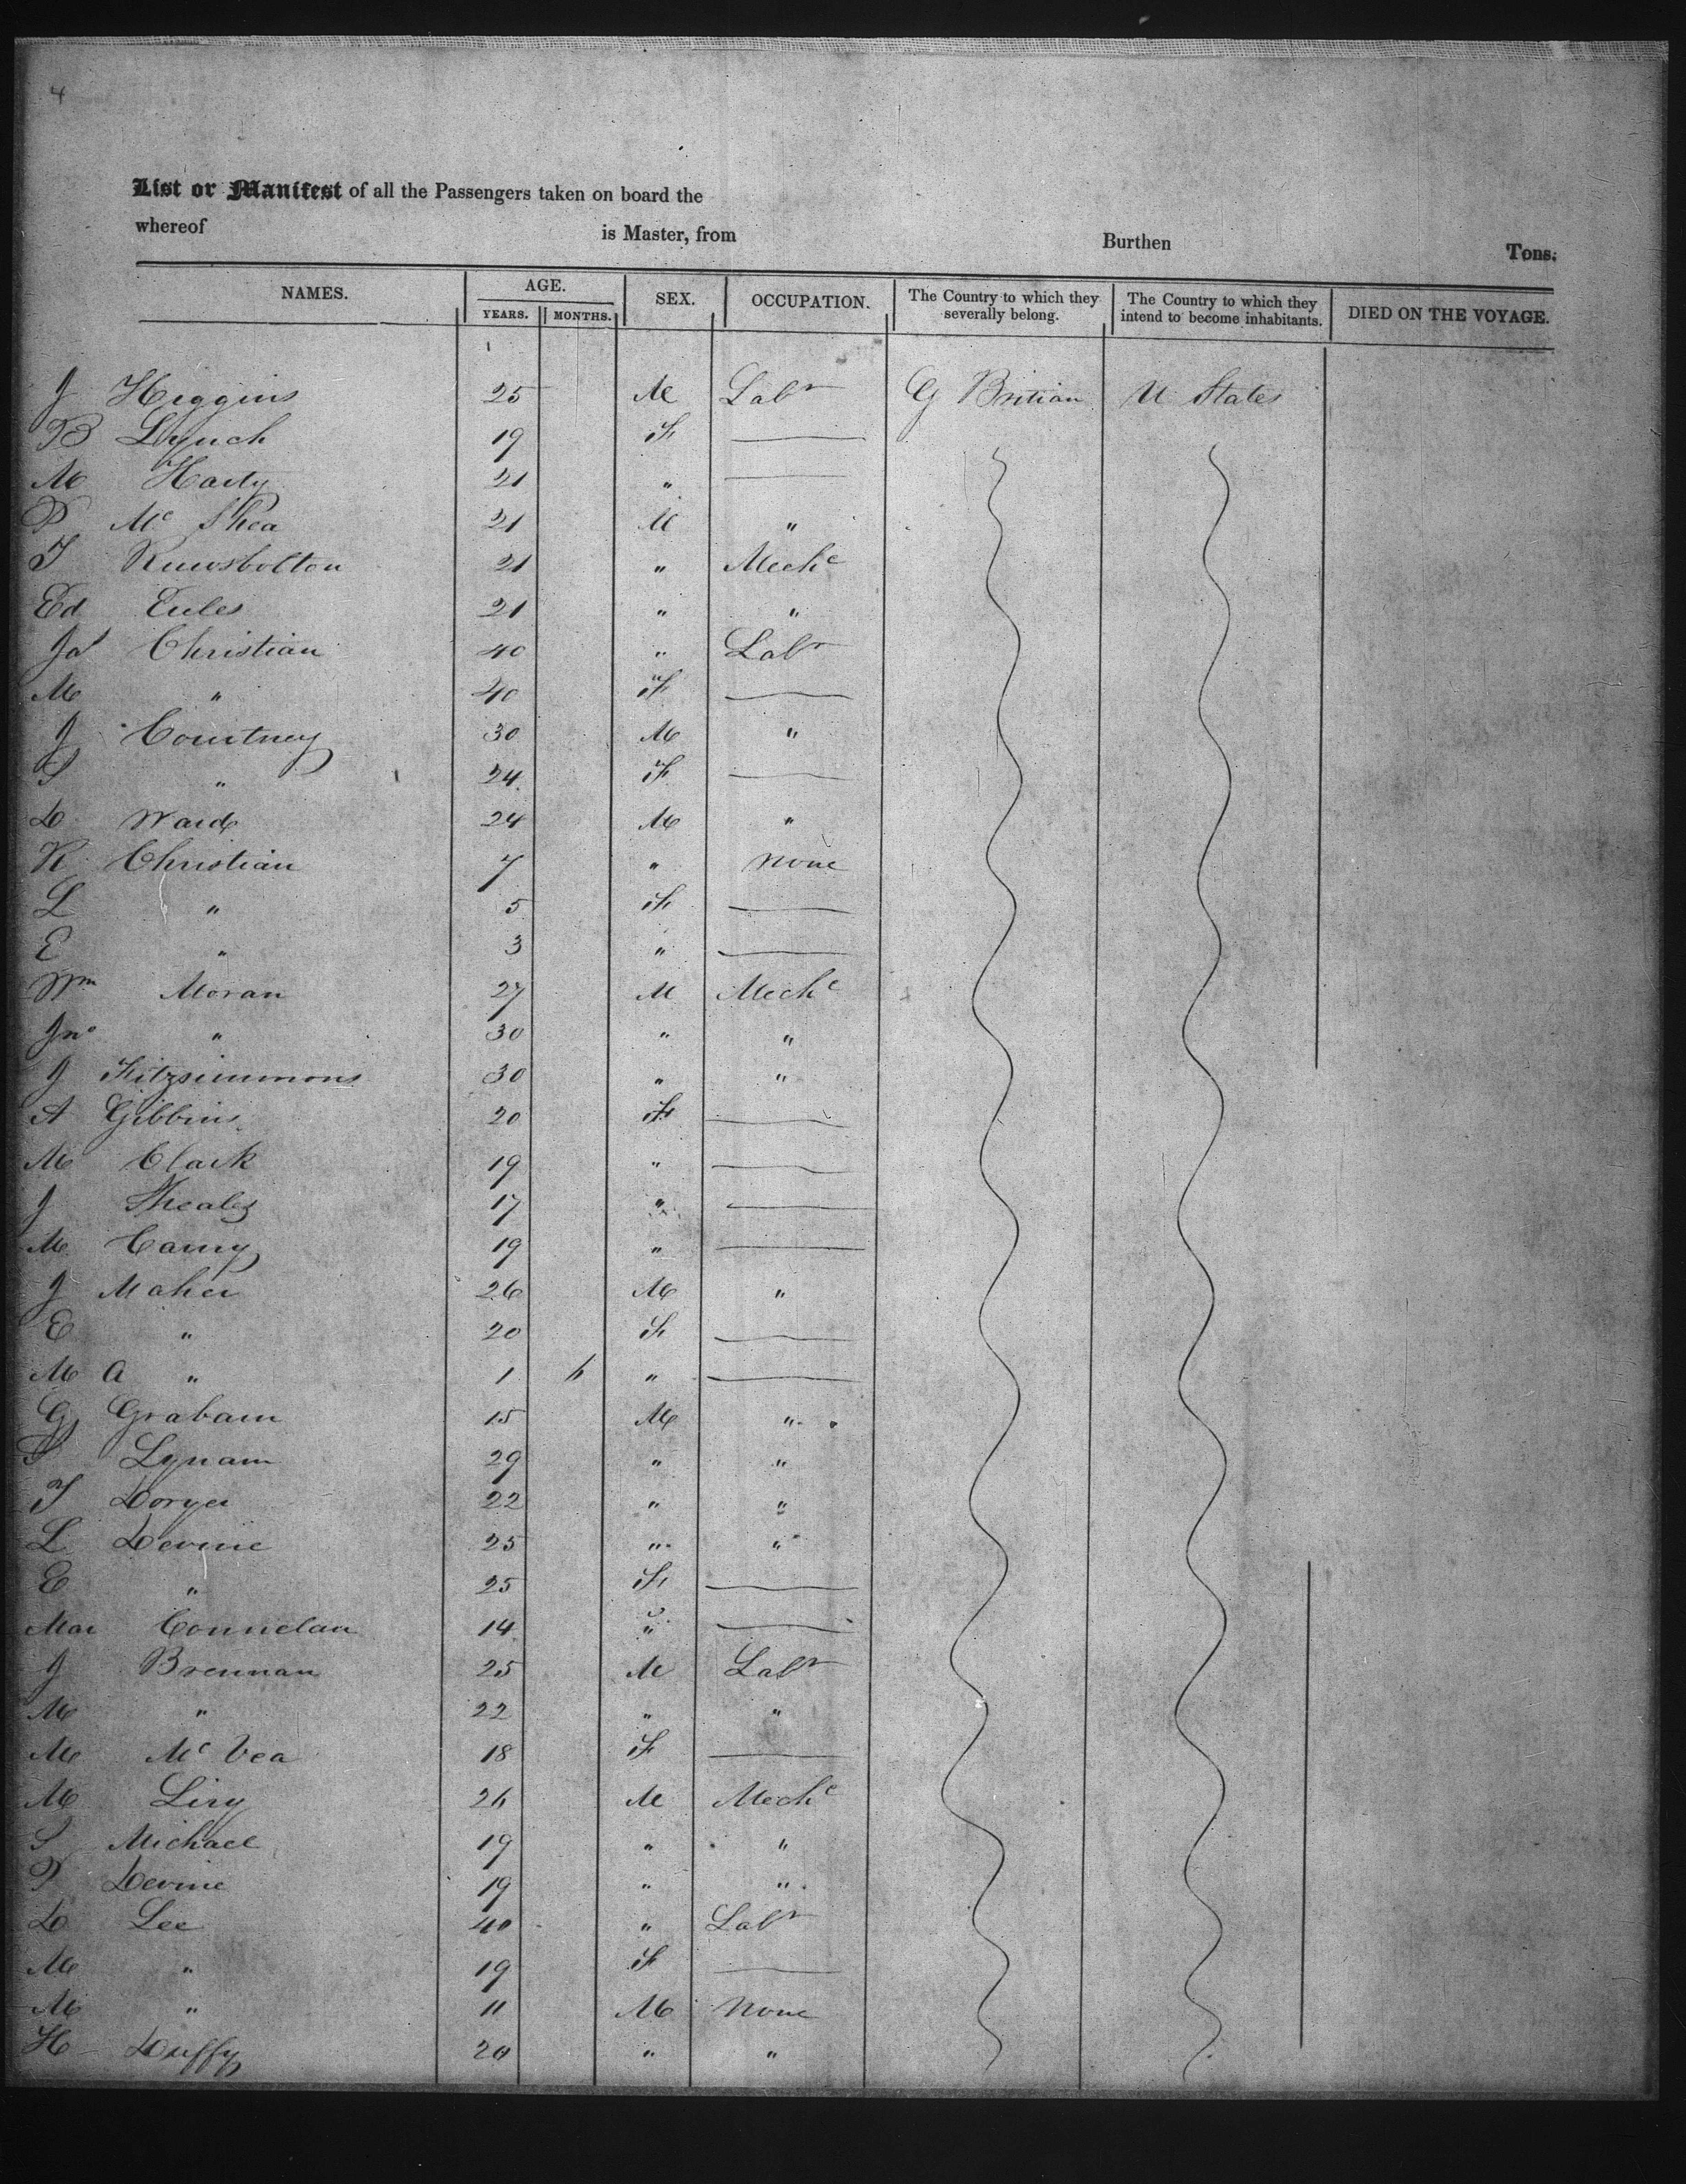 4
List or Manifest of all the Passengers taken on board the
whereof is Master, from Burthen Tons.
NAMES. AGE. SEX. OCCUPATION. The Country to which they severally belong. The Country to which they intend to become inhabitants. DIED ON THE VOYAGE.
YEARS. MONTHS.
J Higgins 25 M Labr G Britian U States
B Lynch 19 F
M Harty 21 "
P Mc Shea 21 M "
T 21 " Mechc
Ed Eules 21 " "
Jas Christian 40 " Labr
M " 40 F
J Courtney 30 M "
S " 24 F
D Ward 24 M "
R Christian 7 " None
L " 5 F
E " 3 "
Wm Moran 27 M Mechc
Jno " 30 " "
J Fitzsimmons 30 " "
A Gibbins 20 F
M Clark 19 "
J 17 "
M 19 "
J Maher 26 M "
E " 20 F
M A " 1 6 "
G Graham 15 M "
S Lynam 29 " "
T Doryer 22 " "
L Devine 25 " "
E " 25 F
Mar Connelan 14 "
J Brennan 25 M Labr
M " 22 " "
M Mc Vea 18 F
M 26 M Mechc
S Michael 19 " "
P Devine 19 " "
D Lee 40 " Labr
M " 19 F
M " 11 M None
H Duffy 20 " "